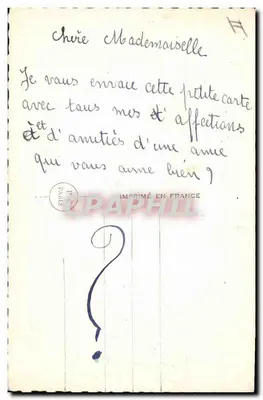 Chère Mademoiselle
Je vous envoie cette petite carte
avec tous mes d'affections
et d'amitiés d'une amie
que vous aime bien ?
IMPRIMÉ EN FRANCE
CPAPHIL
?